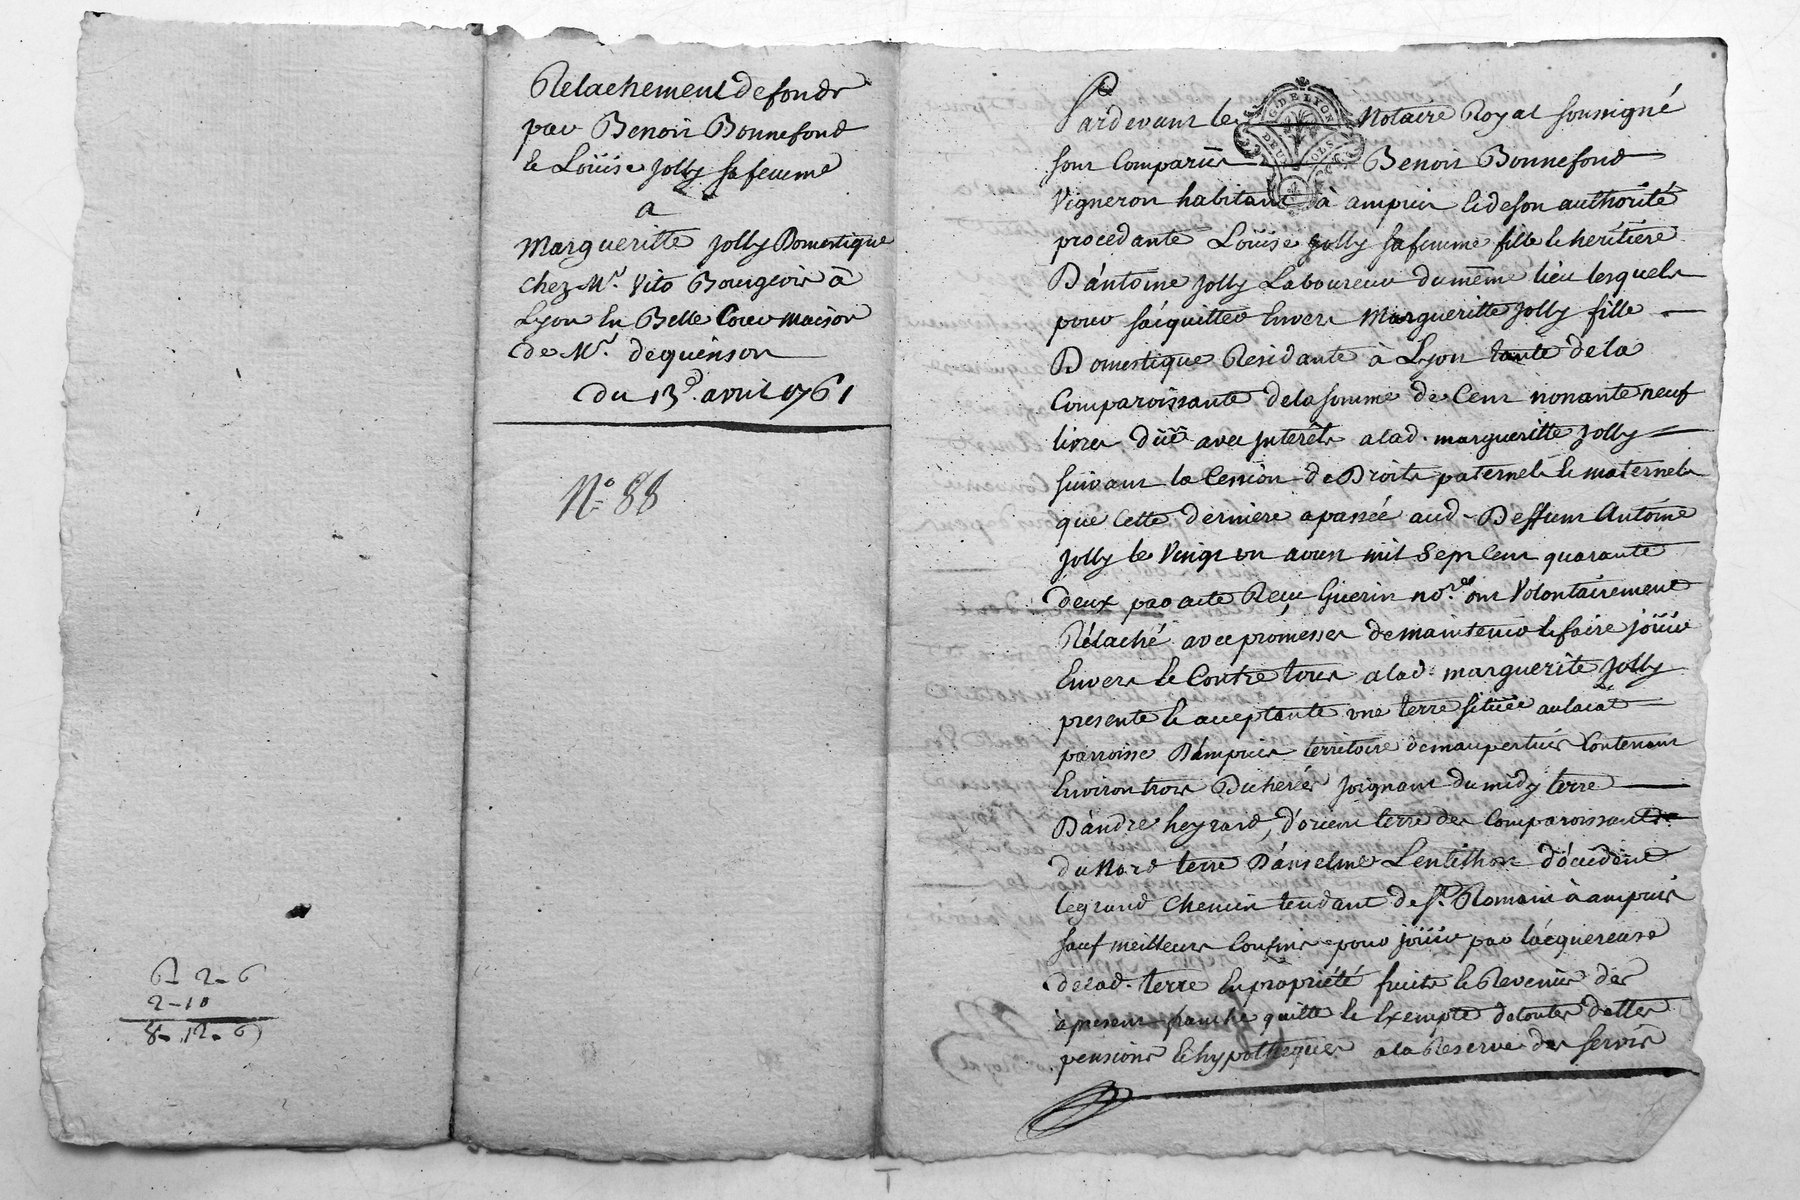 Relachement de fonds
par Benoit Bonnefond
& Loüise Jolly sa femme
a
Margueritte Jolly Domestique
chez Mr. Vito Bourgeois à
Lyon en Belle Cour maison
de Mr. dequinson
du 13e. avril 1761
No. 88
6 - 2 - 6
2 - 10
8 - 12 - 6
Pardevant le Notaire Royal soussigné
G. DE LYON
DEUX SOLS
sont Comparus Benoit Bonnefond
Vigneron habitant à ampuis & de son authorité
procédante Loüise Jolly sa femme fille & heritière
D'antoine Jolly Laboureur du même lieu lesquels
pour s'acquitter Envers Margueritte Jolly fille
Domestique Residante à Lyon tante de la
Comparoissante de la somme de Cent nonante neuf
livres düe avec Interêts a lad. margueritte Jolly
suivant la Cession de Droits paternels & maternels
que cette derniere a passée aud. Deffunt Antoine
Jolly le Vingt un aoust mil Sept Cent quarante
deux par acte Reçu Guerin no.re ont Volontairement
Rélaché avec promesses de maintenir & faire joüir
Envers & Contre tous a lad. marguerite Jolly
presente & acceptante une terre située au laiat
parroisse D'ampuis territoire de maupertuis Contenant
Environ trois Bicherées joignant du midy terre
D'andré heyrard, d'orient terre des Comparoissants
du Nord terre D'anselme Lentillon d'occident
le grand Chemin tendant de St. Romain à ampuis
sauf meilleurs Confins pour joüir par l'acquereuse
de lad. terre En propriété fruits & Revenus dès
à present franche quitte & Exempte de toutes dettes
pensions & hypotheques a la Reserve des servis